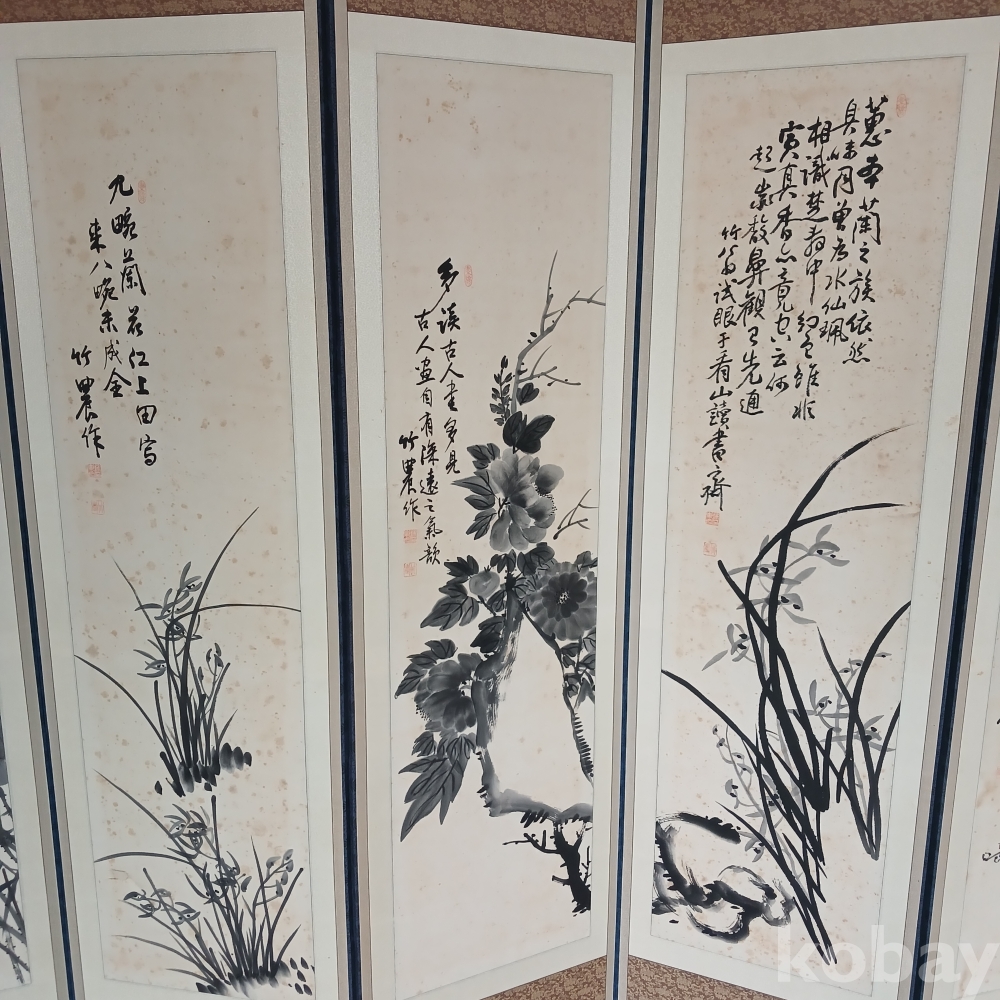 蕙本蘭之族依然
臭味同曾為水仙珮
相識楚詞中幻色雖非
實真香亦竟空云何
起微馥鼻觀已先通
竹農試眼于看山讀書齋
多讀古人書多見
古人畫自有深遠之氣韻
竹農作
九畹蘭花江上田寫
來八畹未成全
竹農作
kobay